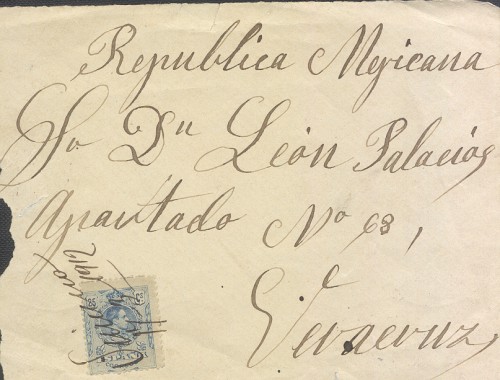 Republica Mejicana
Sr Dn León Palacios
Apartado No 63,
Veracruz
1912
25